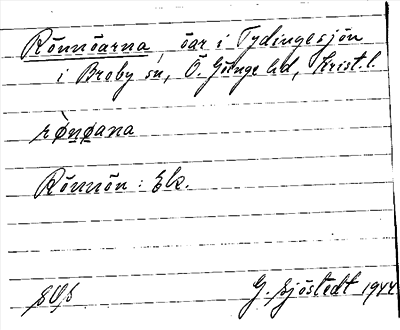 Rönnöarna, öar i Tydingesjön
i Broby sn, Ö. Göinge hd, Krist. l.
rø̀nøana
Rönnön : Ek.
G. Sjöstedt 1944